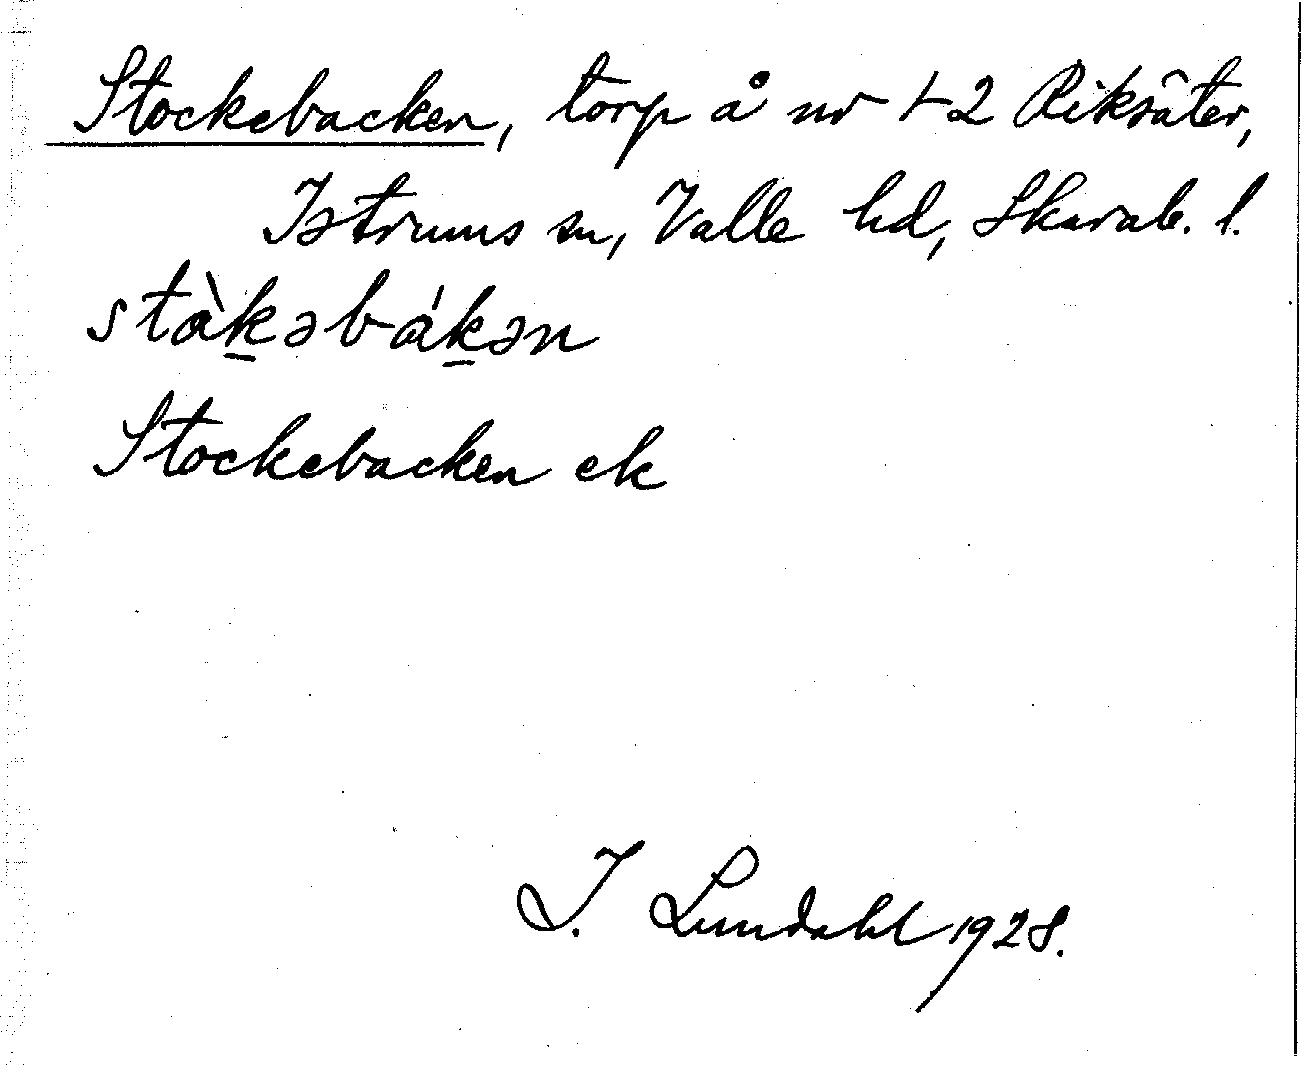 Stockebacken, torp å nr 1-2 Riksäter,
Istrums sn, Valle hd, Skarab. l.
stàḵəbáḵən
Stockebacken ek
I. Lundahl 1928.